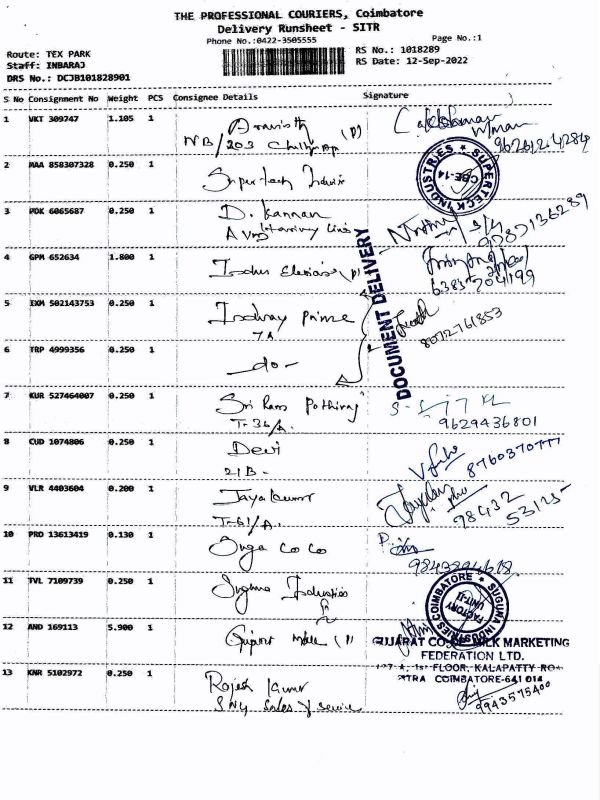 THE PROFESSIONAL COURIERS, Coimbatore
Delivery Runsheet - SITR
Phone No.:0422-3505555
Page No.:1
Route: TEX PARK
RS No.: 1018289
Staff: INBARAJ
RS Date: 12-Sep-2022
DRS No.: DCJB101828901
S No Consignment No Weight PCS Consignee Details Signature
1 VKT 309747 1.105 1
(P)
2 MAA 858307328 0.250 1
SUPERTECK INDUSTRIES
CBE-14
3 PDK 6065687 0.250 1 D. Kannan
4 GPM 652634 1.800 1 Indus (P)
DOCUMENT DELIVERY
5 EKM 502143753 0.250 1 Indway Prime
7A
8072761853
6 TRP 4999356 0.250 1 -do-
7 KUR 527464007 0.250 1 Sri Ram Pothiraj
T-36/A.
9629436801
8 CUD 1074806 0.250 1 Devi
21B-
9 VLR 4403604 0.200 1 Jayakumar
T-61/A.
98432
53125
10 PRD 13613419 0.130 1 Co Co
11 TVL 7109739 0.250 1 Suguna Industries
SUGUNA INDUSTRIES COIMBATORE
FACTORY
UNIT-II
12 AND 169113 5.900 1 Gujarat Milk (P)
GUJARAT CO. MILK MARKETING
FEDERATION LTD.
1st FLOOR, KALAPATTY
COIMBATORE-641 014
13 KNR 5102972 0.250 1 Rajesh Kumar
Sales & Service
9943575400